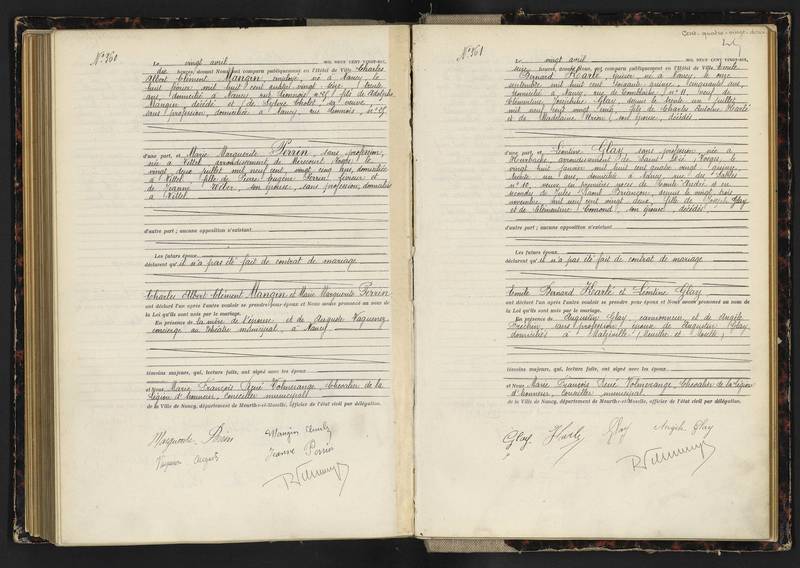 N° 360
Le vingt avril MIL NEUF CENT VINGT-SIX,
dix heures, devant Nous ont comparu publiquement en l'Hôtel de Ville Charles
Albert Clément Mangin, employé, né à Nancy, le
huit février mil huit cent quatre vingt seize, trente
ans, domicilié à Nancy, rue n° 25, fils de Adolphe
Mangin, décédé et de Sylvie Cholet, sa veuve,
sans profession, domiciliée à Nancy, rue n° 25.
d'une part, et Marie Marguerite Perrin, sans profession,
née à Vittel arrondissement de Mirecourt, Vosges, le
vingt deux juillet mil neuf cent, vingt cinq ans, domiciliée
à Vittel, fille de Eugène Perrin, et
de Jeanne son épouse, sans profession, domiciliés
à Vittel.
d'autre part ; aucune opposition n'existant
Les futurs époux
déclarent qu'il n'a pas été fait de contrat de mariage
Charles Albert Clément Mangin et Marie Marguerite Perrin
ont déclaré l'un après l'autre vouloir se prendre pour époux et Nous avons prononcé au nom de
la Loi qu'ils sont unis par le mariage.
En présence de la mère de l'épouse et de Auguste Vaquenez
concierge au théâtre municipal, à Nancy
témoins majeurs, qui, lecture faite, ont signé avec les époux
et Nous Marie François René Volmerange, Chevalier de la
Légion d'honneur, conseiller municipal
de la Ville de Nancy, département de Meurthe-et-Moselle, officier de l'état civil par délégation.
Marguerite Perrin
Jeanne Perrin
N° 361
Cent-quatre-vingt-deux
Le vingt avril MIL NEUF CENT VINGT-SIX,
seize heures, devant Nous, ont comparu publiquement en l'Hôtel de Ville Emile
Bernard Harlé, épicier, né à Nancy, le onze
septembre mil huit cent soixante quinze, cinquante ans,
domicilié à Nancy, rue de n° 11, veuf de
Clémentine Joséphine Glay, depuis le trente un juillet
mil neuf cent vingt cinq, fils de Charles Antoine Harlé
et de Madelaine son épouse, décédés
d'une part, et Léontine Glay, sans profession, née à
arrondissement de Saint Dié, Vosges, le
vingt huit janvier mil huit cent quatre vingt quinze,
trente un ans, domiciliée à Nancy, rue des Sables
n° 10, veuve en premières noces de Emile André et en
secondes de Jules depuis le vingt trois
novembre mil neuf cent vingt deux, fille de Joseph Glay
et de Clémentine son épouse, décédés
d'autre part ; aucune opposition n'existant
Les futurs époux
déclarent qu'il n'a pas été fait de contrat de mariage
Emile Bernard Harlé et Léontine Glay
ont déclaré l'un après l'autre vouloir se prendre pour époux et Nous avons prononcé au nom de
la Loi qu'ils sont unis par le mariage.
En présence de Augustin Glay, cantonnier, et de Angèle
sans profession, épouse de Augustin Glay,
domiciliés à (Meurthe et Moselle)
témoins majeurs, qui, lecture faite, ont signé avec les époux
et Nous Marie François René Volmerange, Chevalier de la Légion
d'honneur, conseiller municipal
de la Ville de Nancy, département de Meurthe-et-Moselle, officier de l'état civil par délégation.
Glay Harlé Glay Angèle Glay